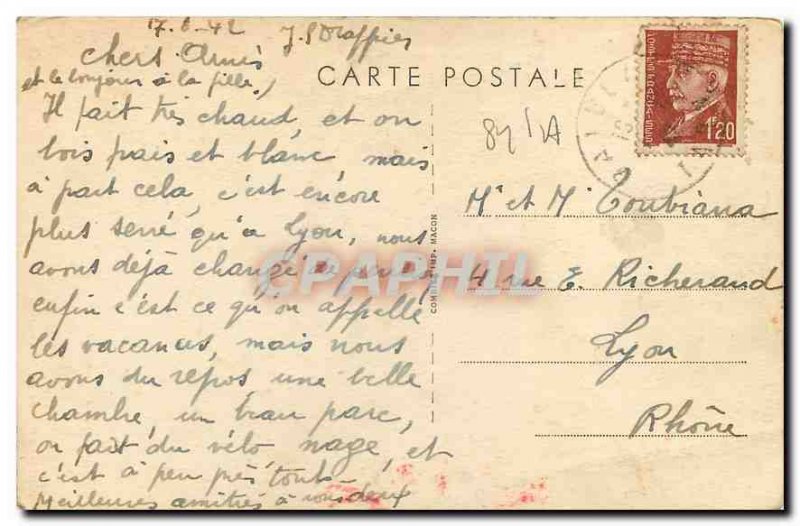 17.6.42
chers Amis
et le bonjour à la fille
CARTE POSTALE
Il fait très chaud, et on
bois frais et blanc mais
à part cela, c'est encore
plus serré qu'à Lyon, nous
avons déjà changé de
enfin c'est ce qu'on appelle
les vacances, mais nous
avons du repos une belle
chambre, un beau parc,
on fait du vélo nage, et
c'est à peu près tout
Meilleures amitiés à vous deux
CAPHIL
COMBIER IMP. MACON
1F20
Mr et Me Toubiana
4 rue E. Richerand
Lyon
Rhône